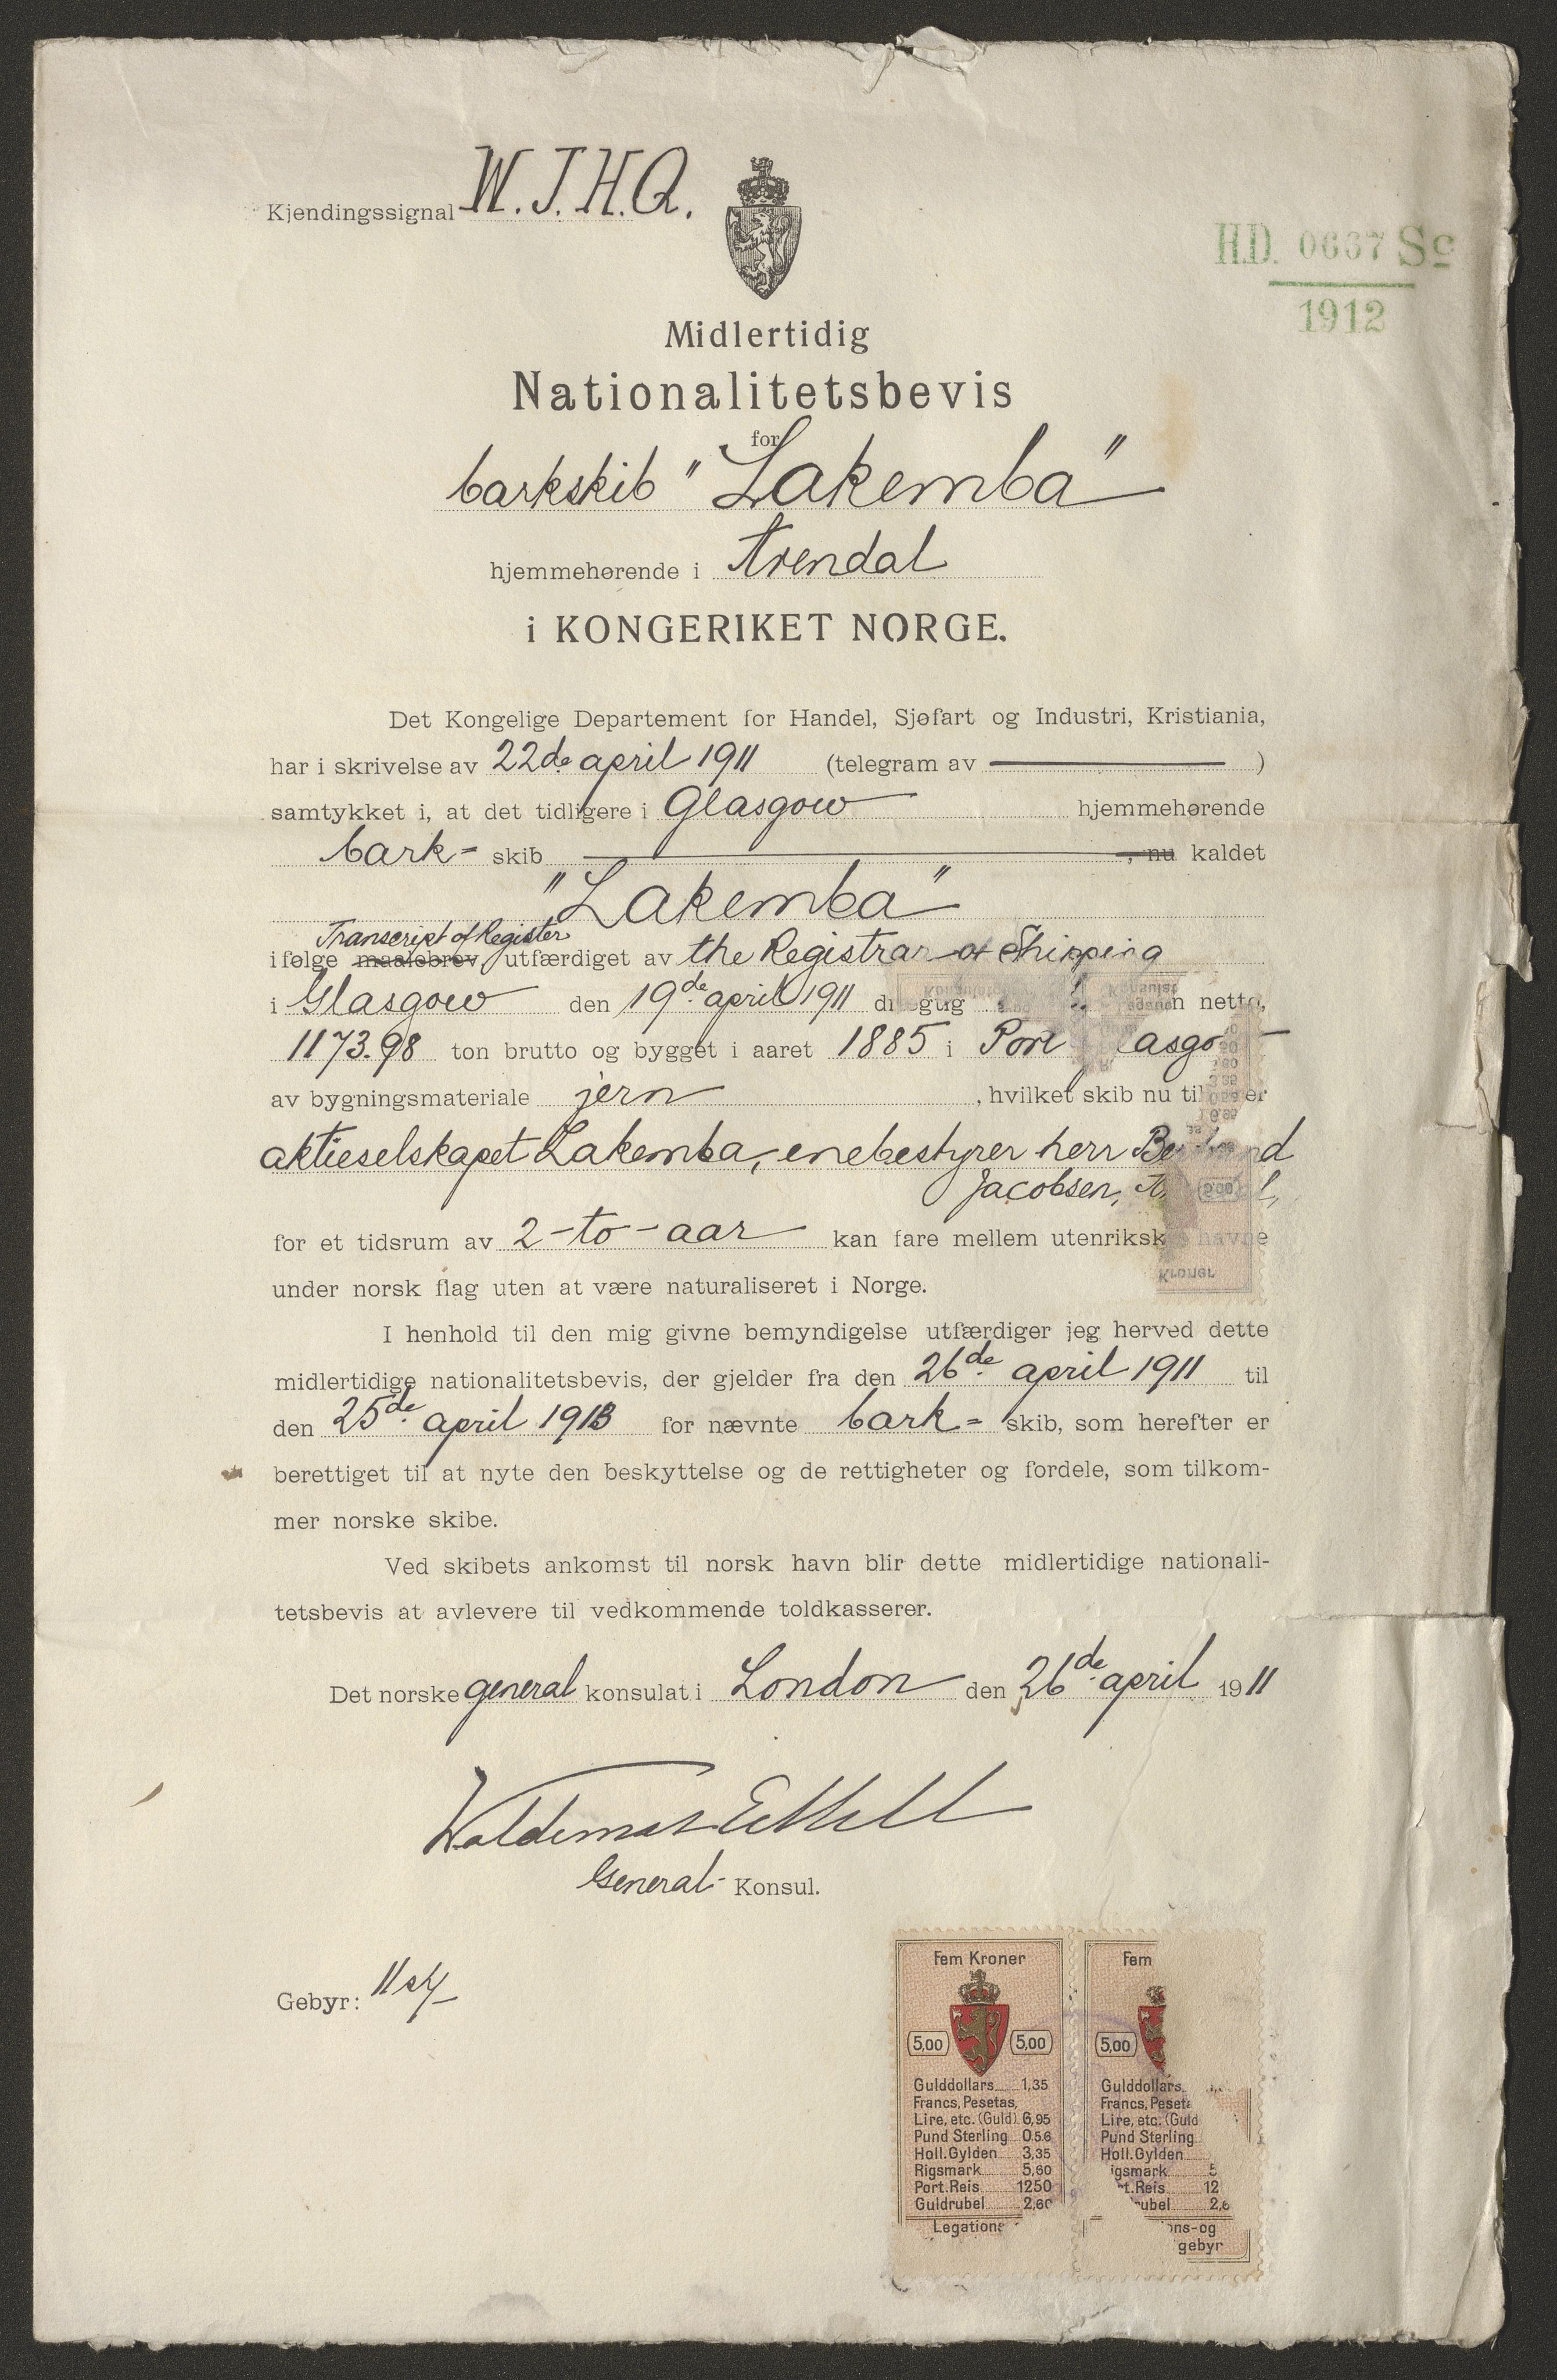 Kjendingssignal W.J.H.Q.
H.D. 0667 Sc
1912
Midlertidig
Nationalitetsbevis
for
barkskib "Lakemba"
hjemmehørende i Arendal
i KONGERIKET NORGE.
Det Kongelige Departement for Handel, Sjøfart og Industri, Kristiania,
har i skrivelse av 22de april 1911 (telegram av )
samtykket i, at det tidligere i Glasgow hjemmehørende
bark- skib , nu kaldet
"Lakemba"
Transcript of Register
ifølge maalebrev, utfærdiget av the Registrar of Shipping
i Glasgow den 19de april 1911 netto,
1173.98 ton brutto og bygget i aaret 1885 i
av bygningsmateriale jern , hvilket skib nu
aktieselskapet Lakemba, enebestyrer herr
Jacobsen,
for et tidsrum av 2-to-aar kan fare mellem
under norsk flag uten at være naturaliseret i Norge.
I henhold til den mig givne bemyndigelse utfærdiger jeg herved dette
midlertidige nationalitetsbevis, der gjelder fra den 26de april 1911 til
den 25de april 1913 for nævnte bark- skib, som herefter er
berettiget til at nyte den beskyttelse og de rettigheter og fordele, som tilkom-
mer norske skibe.
Ved skibets ankomst til norsk havn blir dette midlertidige nationali-
tetsbevis at avlevere til vedkommende toldkasserer.
Det norske general konsulat i London den 26de april 1911
Waldemar
General- Konsul.
Gebyr:
Fem Kroner
5,00 5,00
Gulddollars 1,35
Francs, Pesetas,
Lire, etc. (Guld) 6,95
Pund Sterling 0.5.6
Holl. Gylden 3,35
Rigsmark 5,60
Port. Reis 1250
Guldrubel 2,60
Fem
5,00
Gulddollars
Francs,
Lire, etc. (Guld
Pund Sterling
Holl. Gylden
gebyr